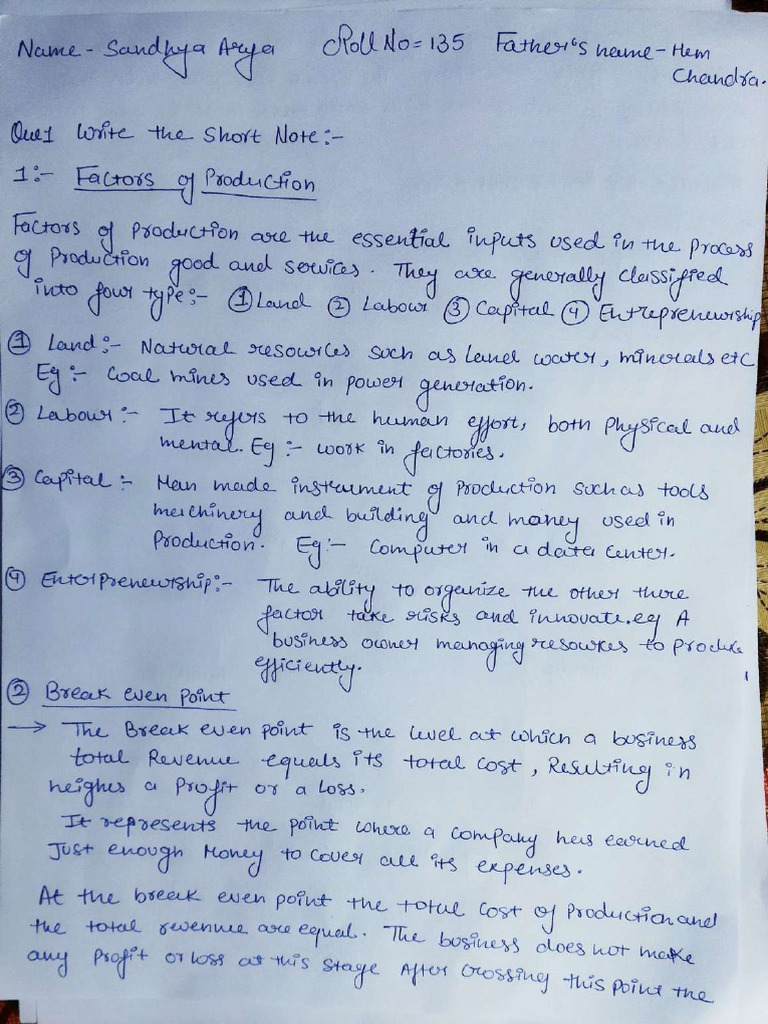 Name - Sandhya Arya Roll No = 135 Father's name - Hem
Chandra.
Que1 Write the Short Note:-
1:- Factors of Production
Factors of production are the essential inputs used in the process
of Production good and services. They are generally classified
into four type:- ① Land ② Labour ③ Capital ④ Entrepreneurship
① Land:- Natural resources such as land water, minerals etc
Eg:- Coal mines used in power generation.
② Labour:- It refers to the human effort, both Physical and
mental. Eg:- work in factories.
③ Capital:- Man made instrument of production such as tools
machinery and building and money used in
Production. Eg:- Computer in a data center.
④ Enterpreneurship:- The ability to organize the other there
factor take risks and innovate. eg A
business owner managing resources to produce
efficiently.
② Break even point
→ The Break even point is the level at which a business
total Revenue equals its total cost, Resulting in
neigher a Profit or a loss.
It represents the point where a company has earned
Just enough Money to cover all its expenses.
At the break even point the total cost of production and
the total revenue are equal. The business does not make
any Profit or loss at this stage After crossing this point the